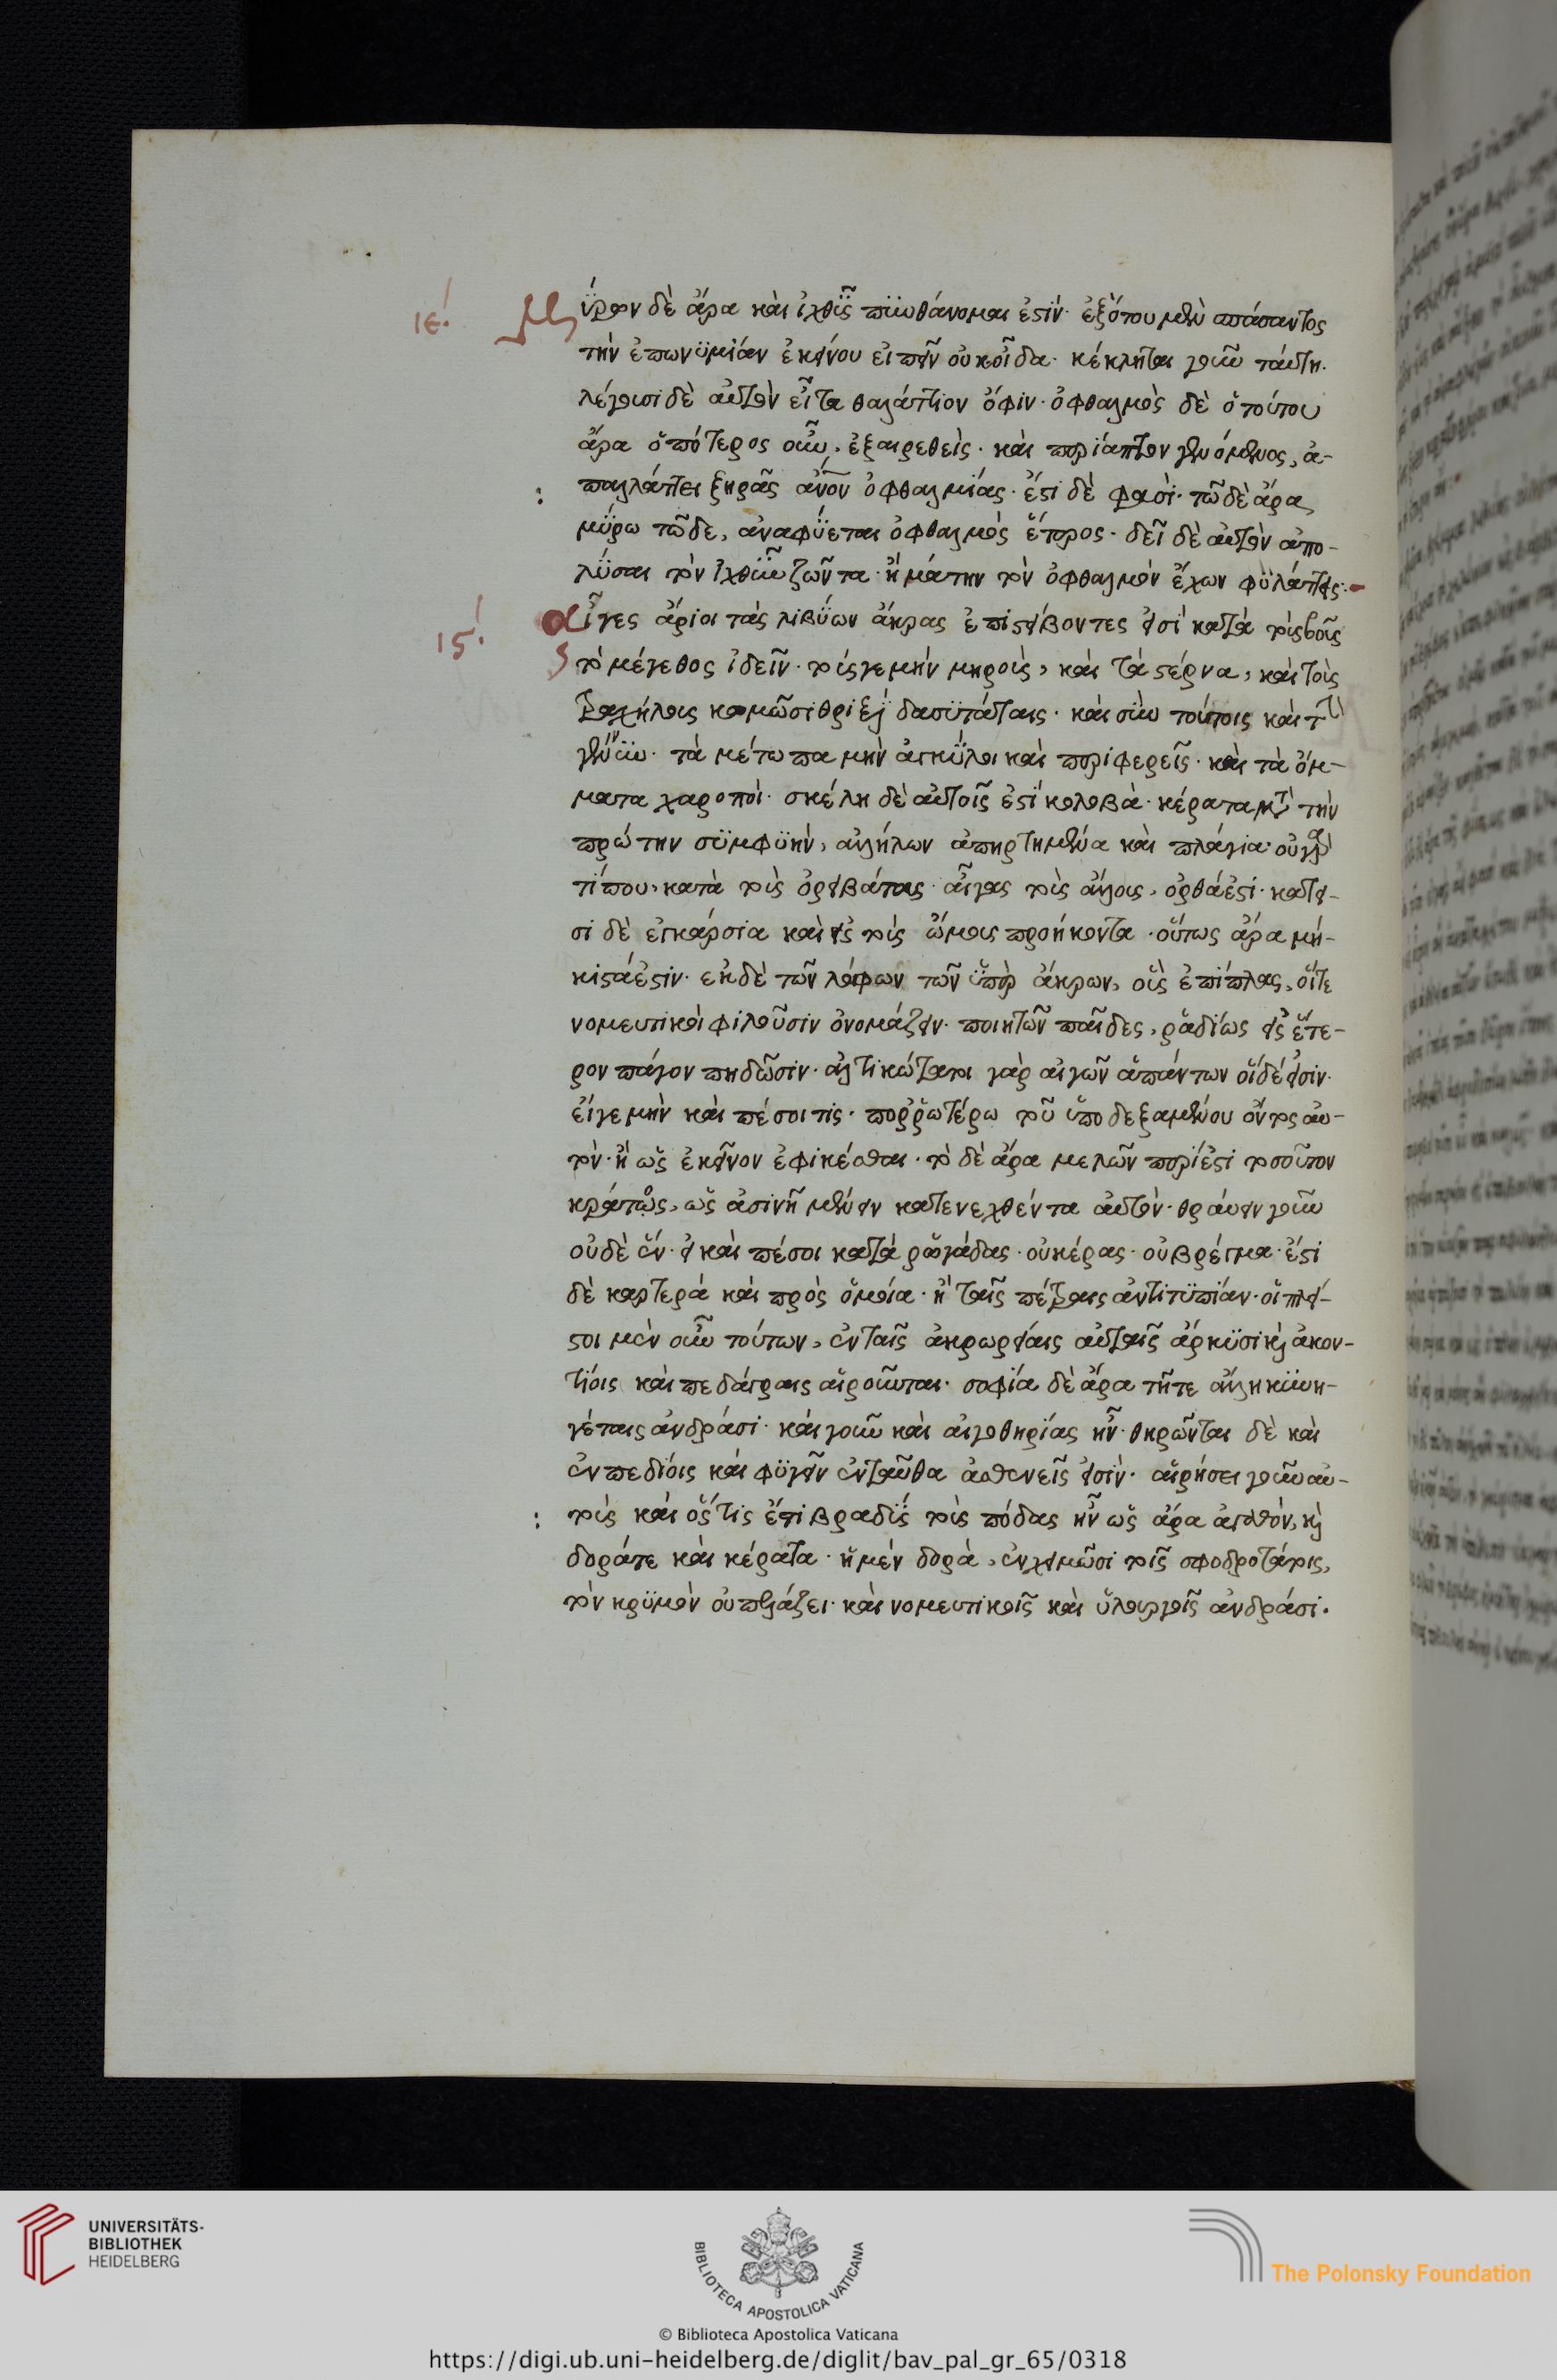 ιε΄. Μύρον δὲ ἄρα καὶ ἰχθῦς πυνθάνομαι ἐστίν· ἐξ ὅτου μὲν σπάσαντος
τὴν ἐπωνυμίαν ἐκείνου εἰπεῖν οὐκ οἶδα· κέκληται γοῦν ταύτη.
λέγουσι δὲ αὐτὸν εἶτα θαλάττιον ὄφιν· ὀφθαλμὸς δὲ ὁ τούτου
ἄρα ὁπότερος οὖν, ἐξαιρεθεὶς· καὶ περίαπτον γενόμενος, ἀ-
παλλάττει ξηρᾶς ἄνον ὀφθαλμίας· ἔστι δὲ φασὶ· τῶ δὲ ἄρα
μύρω τῶδε, ἀναφύεται ὀφθαλμὸς ἕτερος· δεῖ δὲ αὐτὸν ἀπο-
λῦσαι τὸν ἰχθῦν ζῶντα· ἢ μάτην τὸν ὀφθαλμὸν ἔχων φυλάττεις·
ις΄. αἶγες ἄγριοι τὰς λιβύων ἄκρας ἐπιστείβοντες εἰσὶ κατὰ τοὺς βοῦς
τὸ μέγεθος ἰδεῖν· τούς γε μὴν μηροὺς, καὶ τὰ στέρνα, καὶ τοὺς
τραχήλους κομῶσι θριξὶ δασυτάταις· καὶ σὺν τούτοις καὶ τὴν
γένυν· τὰ μέτωπα μὴν ἀγκύλοι καὶ περιφερεῖς· καὶ τὰ ὄμ-
ματα χαροποὶ· σκέλη δὲ αὐτοῖς ἐστὶ κολοβὰ· κέρατα μετὰ τὴν
πρώτην σύμφυην, ἀλλήλων ἀπηρτημένα καὶ πλάγια· οὐ γὰρ
τί που, κατὰ τοὺς ὀρειβάτας αἶγας τοὺς ἄλλους, ὀρθά ἐστι· κάτει-
σι δὲ ἐγκάρσια καὶ εἰς τοὺς ὤμους προήκοντα· οὕτως ἄρα μή-
κιστά ἐστιν· ἐκ δὲ τῶν λόφων τῶν ὑπὲρ ἄκρων, οὓς ἐπίπλους, οἵ τε
νομευτικοὶ φιλοῦσιν ὀνομάζειν· ποιητῶν παῖδες, ῥαδίως εἰς ἕτε-
ρον πάγον πηδῶσιν· ἁλτικώτατοι γὰρ αἰγῶν ἁπάντων οἵδε εἰσιν·
εἴ γε μὴν καὶ πέσοι τις· πορρωτέρω τοῦ ὑποδεξαμένου ὄντος αὐ-
τὸν· ἢ ὡς ἐκεῖνον ἐφικέσθαι· τὸ δὲ ἄρα μελῶν περίεστι τοσοῦτον
κράτος, ὡς ἀσινῆ μένειν κατενεχθέντα αὐτὸν· θραύειν γοῦν
οὐδὲ ἓν· εἰ καὶ πέσοι κατὰ ῥωγάδας· οὐ κέρας· οὐ βρέγμα· ἔστι
δὲ καρτερὰ καὶ πρὸς ὅμοια· ἢ ταῖς πέτραις ἀντιτυπίαν· οἱ πλεῖ-
στοι μὲν οὖν τούτων, ἐν ταῖς ἀκρωρείαις αὐταῖς ἄρκυσι καὶ ἀκον-
τίοις καὶ πεδάγραις αἱροῦνται· σοφία δὲ ἄρα τῆ τε ἄλλη κυνη-
γέταις ἀνδράσι· καὶ γοῦν καὶ αἰγοθηρίας ἦν· θηρῶνται δὲ καὶ
ἐν πεδίοις καὶ φυγεῖν ἐνταῦθα ἀσθενεῖς εἰσὶν· αἱρήσει γοῦν αὐ-
τοὺς καὶ ὅστις ἔτι βραδὺς τοὺς πόδας ἦν ὡς ἄρα ἀγαθόν, καὶ
δορά τε καὶ κέρατα· ἡ μὲν δορὰ, ἐν χειμῶσι τοῖς σφοδροτάτοις,
τὸν κρυμὸν οὐ πλάζει· καὶ νομευτικοῖς καὶ ὑλουργοῖς ἀνδράσι·
UNIVERSITÄTS-
BIBLIOTHEK
HEIDELBERG
BIBLIOTECA APOSTOLICA VATICANA
The Polonsky Foundation
© Biblioteca Apostolica Vaticana
https://digi.ub.uni-heidelberg.de/diglit/bav_pal_gr_65/0318